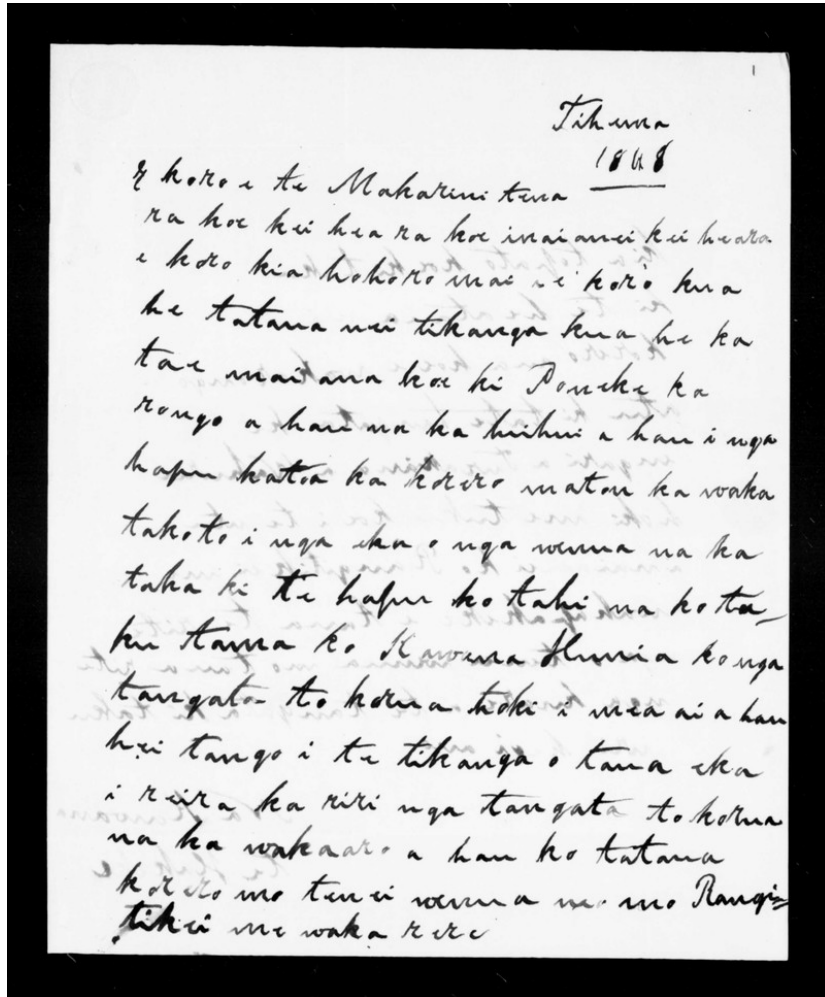 1
Tihema
1848
E koro e te Makarini tena
ra koe kei hea ra koe inaianei kei heara
e koro kia hohoro mai e koro kua
he tatana nei tikanga kua he ka
tae mai ana koe ki Poneke ka
rongo a hau na ka huihui a hau i nga
hapu katoa ka korero matou ka waka
takoto i nga eka o nga wenua na ka
taka ki te hapu ko tahi na ko ta-
ku tama ko Kawena Hunia ko nga
tangata to korua hoki i mea ai a hau
hei tango i te tikanga o tana eka
i reira ka riri nga tangata to korua
na ka wakaaro a hau ko tatana
korero mo tenei wenua mo Rangi=
tikei me waka rere